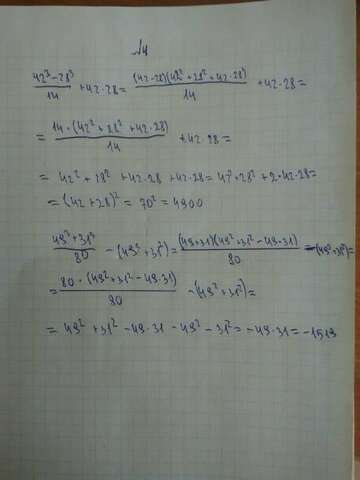 №4
(42³ - 28³)/14 + 42·28 = ((42-28)(42² + 28² + 42·28))/14 + 42·28 =
= (14·(42² + 28² + 42·28))/14 + 42·28 =
= 42² + 28² + 42·28 + 42·28 = 42² + 28² + 2·42·28 =
= (42 + 28)² = 70² = 4900
(49³ + 31³)/80 - (49² + 31²) = ((49+31)(49² + 31² - 49·31))/80 - (49² + 31²) =
= (80·(49² + 31² - 49·31))/80 - (49² + 31²) =
= 49² + 31² - 49·31 - 49² - 31² = -49·31 = -1519